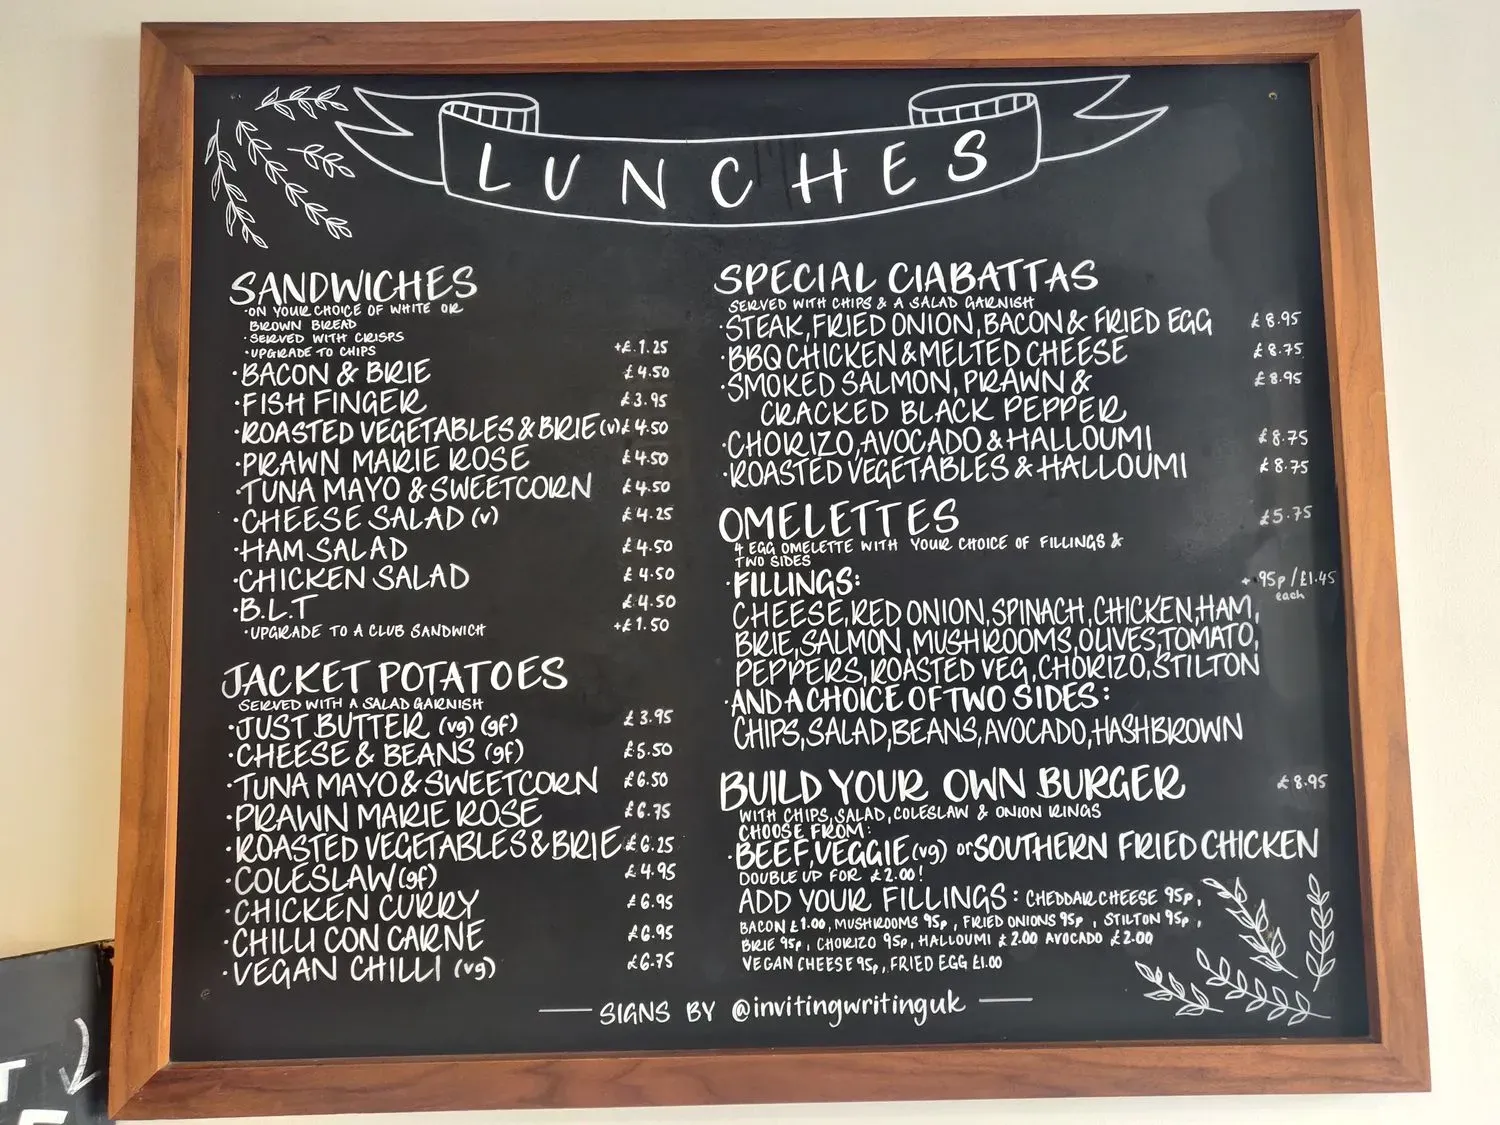 LUNCHES
SANDWICHES
·ON YOUR CHOICE OF WHITE OR
BROWN BREAD
·SERVED WITH CRISPS
·UPGRADE TO CHIPS +£1.25
·BACON & BRIE £4.50
·FISH FINGER £3.95
·ROASTED VEGETABLES & BRIE (v) £4.50
·PRAWN MARIE ROSE £4.50
·TUNA MAYO & SWEETCORN £4.50
·CHEESE SALAD (v) £4.25
·HAM SALAD £4.50
·CHICKEN SALAD £4.50
·B.L.T £4.50
·UPGRADE TO A CLUB SANDWICH +£1.50
JACKET POTATOES
SERVED WITH A SALAD GARNISH
·JUST BUTTER (vg) (gf) £3.95
·CHEESE & BEANS (gf) £5.50
·TUNA MAYO & SWEETCORN £6.50
·PRAWN MARIE ROSE £6.75
·ROASTED VEGETABLES & BRIE £6.25
·COLESLAW (gf) £4.95
·CHICKEN CURRY £6.95
·CHILLI CON CARNE £6.95
·VEGAN CHILLI (vg) £6.75
SPECIAL CIABATTAS
SERVED WITH CHIPS & A SALAD GARNISH
·STEAK, FRIED ONION, BACON & FRIED EGG £8.95
·BBQ CHICKEN & MELTED CHEESE £8.75
·SMOKED SALMON, PRAWN & £8.95
CRACKED BLACK PEPPER
·CHORIZO, AVOCADO & HALLOUMI £8.75
·ROASTED VEGETABLES & HALLOUMI £8.75
OMELETTES £5.75
4 EGG OMELETTE WITH YOUR CHOICE OF FILLINGS &
TWO SIDES
·FILLINGS: + 95p/£1.45
each
CHEESE, RED ONION, SPINACH, CHICKEN, HAM,
BRIE, SALMON, MUSHROOMS, OLIVES, TOMATO,
PEPPERS, ROASTED VEG, CHORIZO, STILTON
·AND A CHOICE OF TWO SIDES:
CHIPS, SALAD, BEANS, AVOCADO, HASHBROWN
BUILD YOUR OWN BURGER £8.95
WITH CHIPS, SALAD, COLESLAW & ONION RINGS
CHOOSE FROM:
·BEEF, VEGGIE (vg) or SOUTHERN FRIED CHICKEN
DOUBLE UP FOR £2.00!
ADD YOUR FILLINGS: CHEDDAR CHEESE 95p,
BACON £1.00, MUSHROOMS 95p, FRIED ONIONS 95p, STILTON 95p,
BRIE 95p, CHORIZO 95p, HALLOUMI £2.00 AVOCADO £2.00
VEGAN CHEESE 95p, FRIED EGG £1.00
SIGNS BY @invitingwritinguk